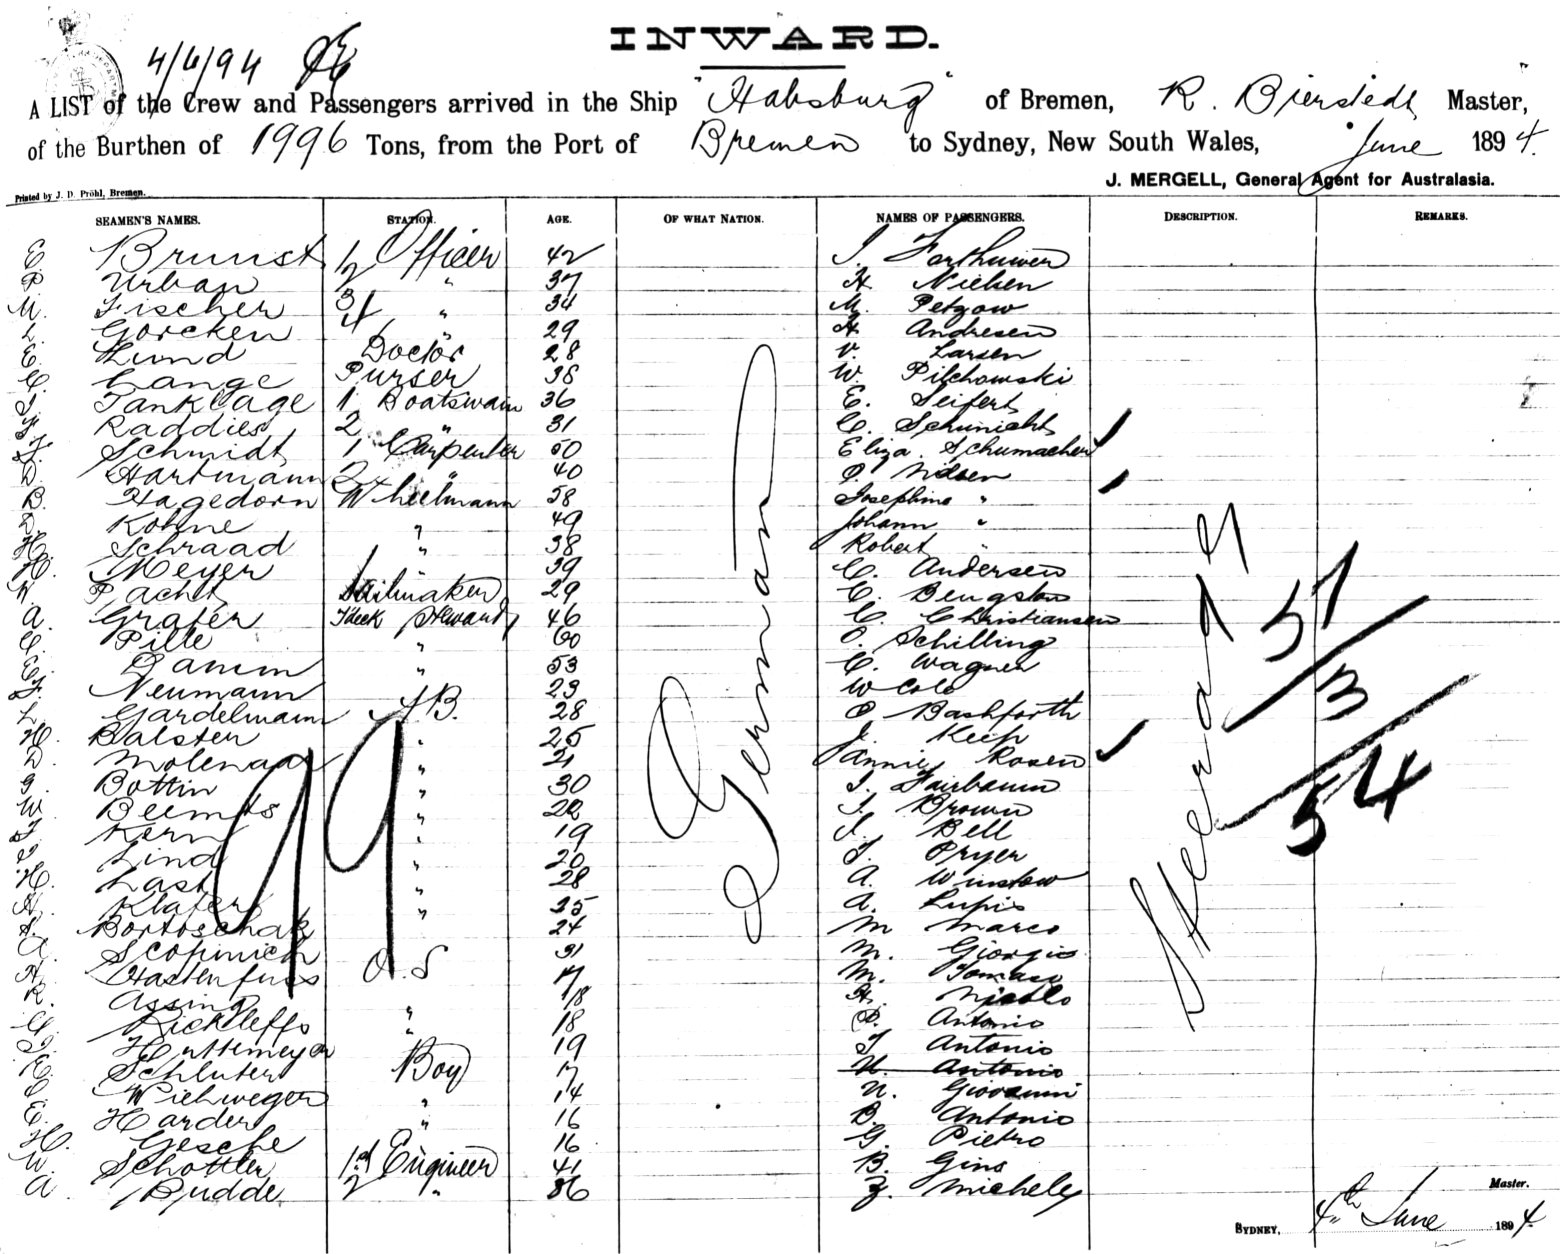 INWARD.
4/6/94
A LIST of the Crew and Passengers arrived in the Ship "Habsburg" of Bremen, R. Bierstedt Master,
of the Burthen of 1996 Tons, from the Port of Bremen to Sydney, New South Wales, June 1894.
J. MERGELL, General Agent for Australasia.
Printed by J. D. Pröhl, Bremen.
SEAMEN'S NAMES. STATION. AGE. OF WHAT NATION. NAMES OF PASSENGERS. DESCRIPTION. REMARKS.
E Brunst 1/2 Officer 42 J.
P Urban " 37 H. Nielsen
M. Fischer 3/4 " 34 M. Petzow
L. Gorcken " 29 H Andresen
E. Lund Doctor 28 V. Larsen
C. Lange Purser 38 W. Pilchowski
J. Tankhage 1 Boatswain 36 E. Seifert
F. Raddies 2 " 31 C. Schunicht
F. Schmidt 1 Carpenter 50 Eliza Schumacher
D. Hartmann 2 " 40 P. Nilsen
B. Hagedorn Wheelmann 58 Josephine "
D. Kohne " 49 Johann "
H. Schraad " 38 Robert "
H. Meyer " 39 C. Andersen
W. Pacht Sailmaker 29 C. Bengston
A. Grafer Deck Steward 46 C. Christiansen
C. Pille " 60 O. Schilling
E. Damm " 53 C. Wagner
F. Neumann 23 W Cole
L. Gardelmann A.B. 28 O Bashforth
H. Balster " 25 J. Keep
D. Molenaar " 21 Annie Rosen
G. Bottin " 30 J. Fairbairn
W. Beemts " 22 J. Brown
J. Korn " 19 J. Bell
J. Lind " 20 T. Pryer
H. Last " 28 A. Winslow
H. Klafer " 25 A. Lupis
Bortoschak 24 M Marco
A. Scopinich 31 M. Giorgio
H. Hastenfuss O.S 17 M. Tomaso
R. Assing 18 H. Nicolo
C. Rickleffs " 18 P. Antonio
J. Huttemeyer " 19 T Antonio
E. Schluter Boy 17 N. Antonio
C. Wiehweger " 14 N. Giovanni
E. Harder " 16 B. Antonio
H. Gesche 16 G. Pietro
W. Schottler 1st Engineer 41 B. Gino
A. Budde 2 " 36 Z. Michely
German
Steerage
99
51
3
54
Master.
SYDNEY, 4th June 1894.